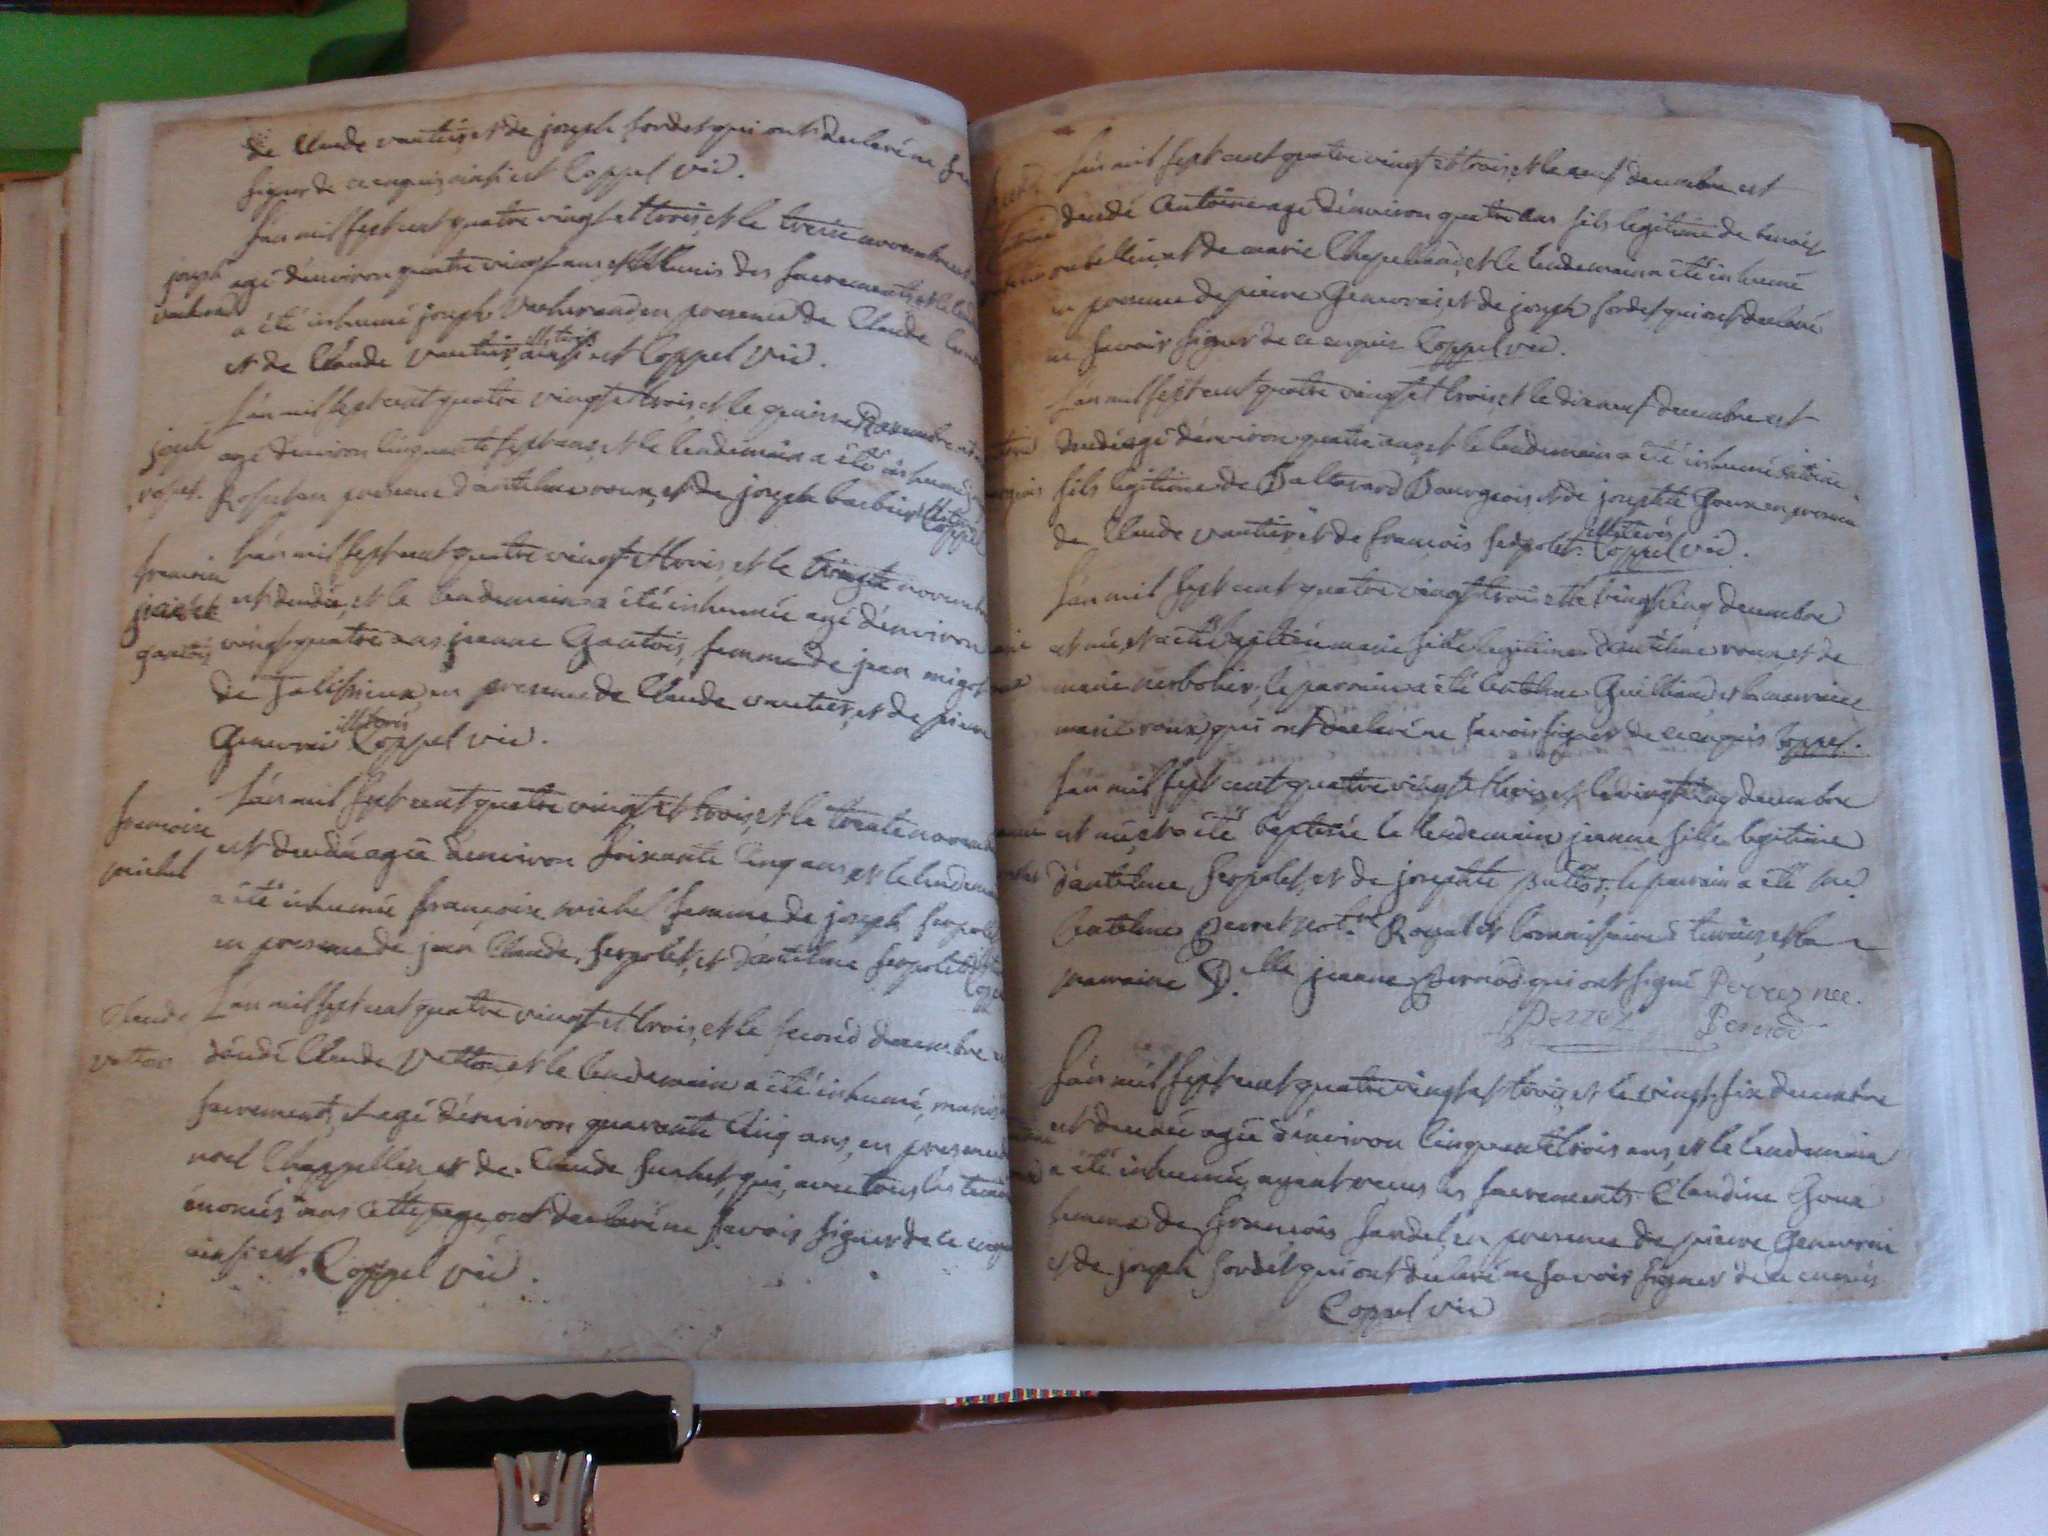 de Claude vautier, et de joseph fordet qui ont declaré ne
signer de ce enquis ainsi est Coppel vic.
joseph
L'an mil sept cent quatre vingt et trois, et le treize novembre est
agé d'environ quatre vingt ans, et Munis des sacrements, et le
a été inhumé joseph en presence de Claude
et de Claude vautier, illiterés ainsi est Coppel vic.
joseph
rosset.
L'an mil sept cent quatre vingt et trois, et le quinze novembre
agé d'environ cinquante sept ans, et le lendemain a été inhumé
Rosset en presence d'antelme roux, et de joseph barbier illiterés
Coppel
jeanne
gautois
L'an mil sept cent quatre vingt et trois, et le novembre
est decedée, et le lendemain a été inhumée agé d'environ
vingt quatre ans jeanne Gautois, femme de jean migot
de en presence de Claude vautier, et de pierre
Genevrai illiterés Coppel vic.
francoise
michel
L'an mil sept cent quatre vingt et trois, et le trente novembre
est decedée agée d'environ soixante Cinq ans, et le lendemain
a été inhumée francoise michel femme de joseph serpolet
en presence de jean Claude serpolet, et d'antelme serpolet
Claude
vetton
L'an mil sept cent quatre vingt et trois, et le second decembre
décédé Claude Vetton, et le lendemain a été inhumé, muni
sacrements, et agé d'environ quarante Cinq ans, en presence
noel Chappellin, et de Claude qui, avec tous les
énoncés dans cette page, ont declaré ne savoir signer de ce enquis
ainsi est. Coppel vic.
L'an mil sept cent quatre vingt et trois, et le neuf decembre est
decedé Antoine agé d'environ quatre ans fils legitime de benoit
et de marie Chapelland, et le lendemain a été inhumé
en presence de pierre Genevrai, et de joseph fordet qui ont declaré
ne savoir signer de ce enquis Coppel vic.
L'an mil sept cent quatre vingt et trois, et le dix neuf decembre est
decedé agé d'environ quatre ans, et le lendemain a été inhumé Antoine
fils legitime de Baltazard Bourgeois, et de josephte Goux en presence
de Claude vautier, et de francois serpolet. illiterés Coppel vic.
L'an mil sept cent quatre vingt trois et le vingt cinq decembre
est née, et a été baptisée marie fille legitime d'antelme roux et de
marie le parrain a été antelme Guilland et la marraine
marie roux, qui ont declaré ne savoir signer de ce enquis Coppel.
L'an mil sept cent quatre vingt et trois, et le vingt cinq decembre
est née, et a été baptisée le lendemain jeanne fille legitime
d'antelme serpolet, et de josephte le parrain a été me
Antelme Perret not.re Royal et Commissaire à terrier, et la
marraine D.elle jeanne Pernod qui ont signé Perret not.
Perret Pernod
L'an mil sept cent quatre vingt et trois, et le vingt six decembre
est decedée agée d'environ Cinquante trois ans, et le lendemain
a été inhumée, ayant reçus les sacrements. Claudine Goux
femme de François en presence de pierre Genevrai
et de joseph fordet qui ont declaré ne savoir signer de ce enquis
Coppel vic